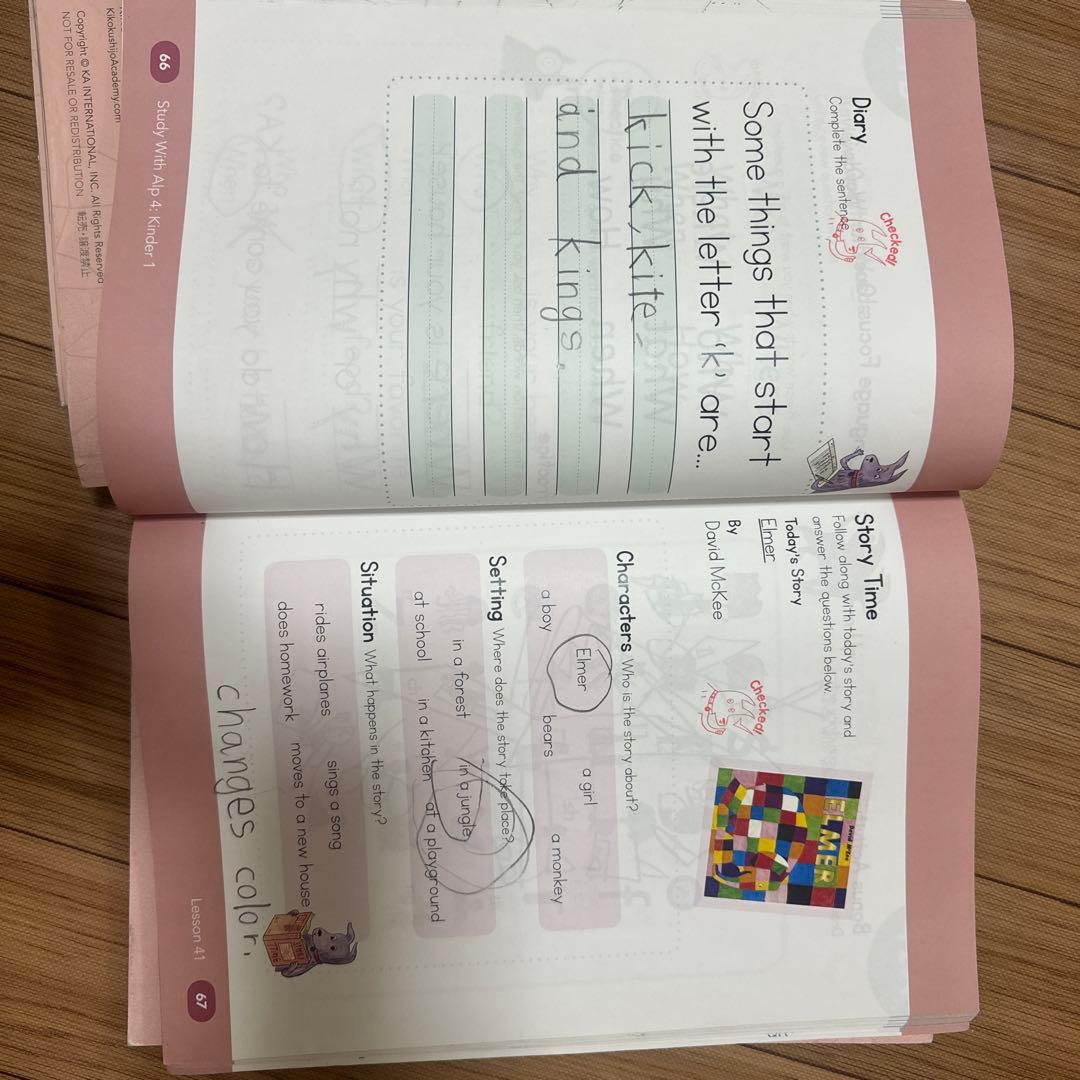 Diary
Complete the sentence.
Checked!
Some things that start
with the letter 'k' are...
kick, kite,
and kings.
66 Study With Alp 4: Kinder 1
KikokushijoAcademy.com
Copyright © KA INTERNATIONAL, INC. All Rights Reserved
NOT FOR RESALE OR REDISTRIBUTION 転売・譲渡禁止
Story Time
Follow along with today's story and
answer the questions below.
Today's Story
Elmer
By
David McKee
Checked!
David McKee
ELMER
Characters Who is the story about?
Elmer a girl
a boy bears a monkey
Setting Where does the story take place?
in a forest in a jungle
at school in a kitchen at a playground
Situation What happens in the story?
rides airplanes sings a song
does homework moves to a new house
changes color.
Lesson 41 67